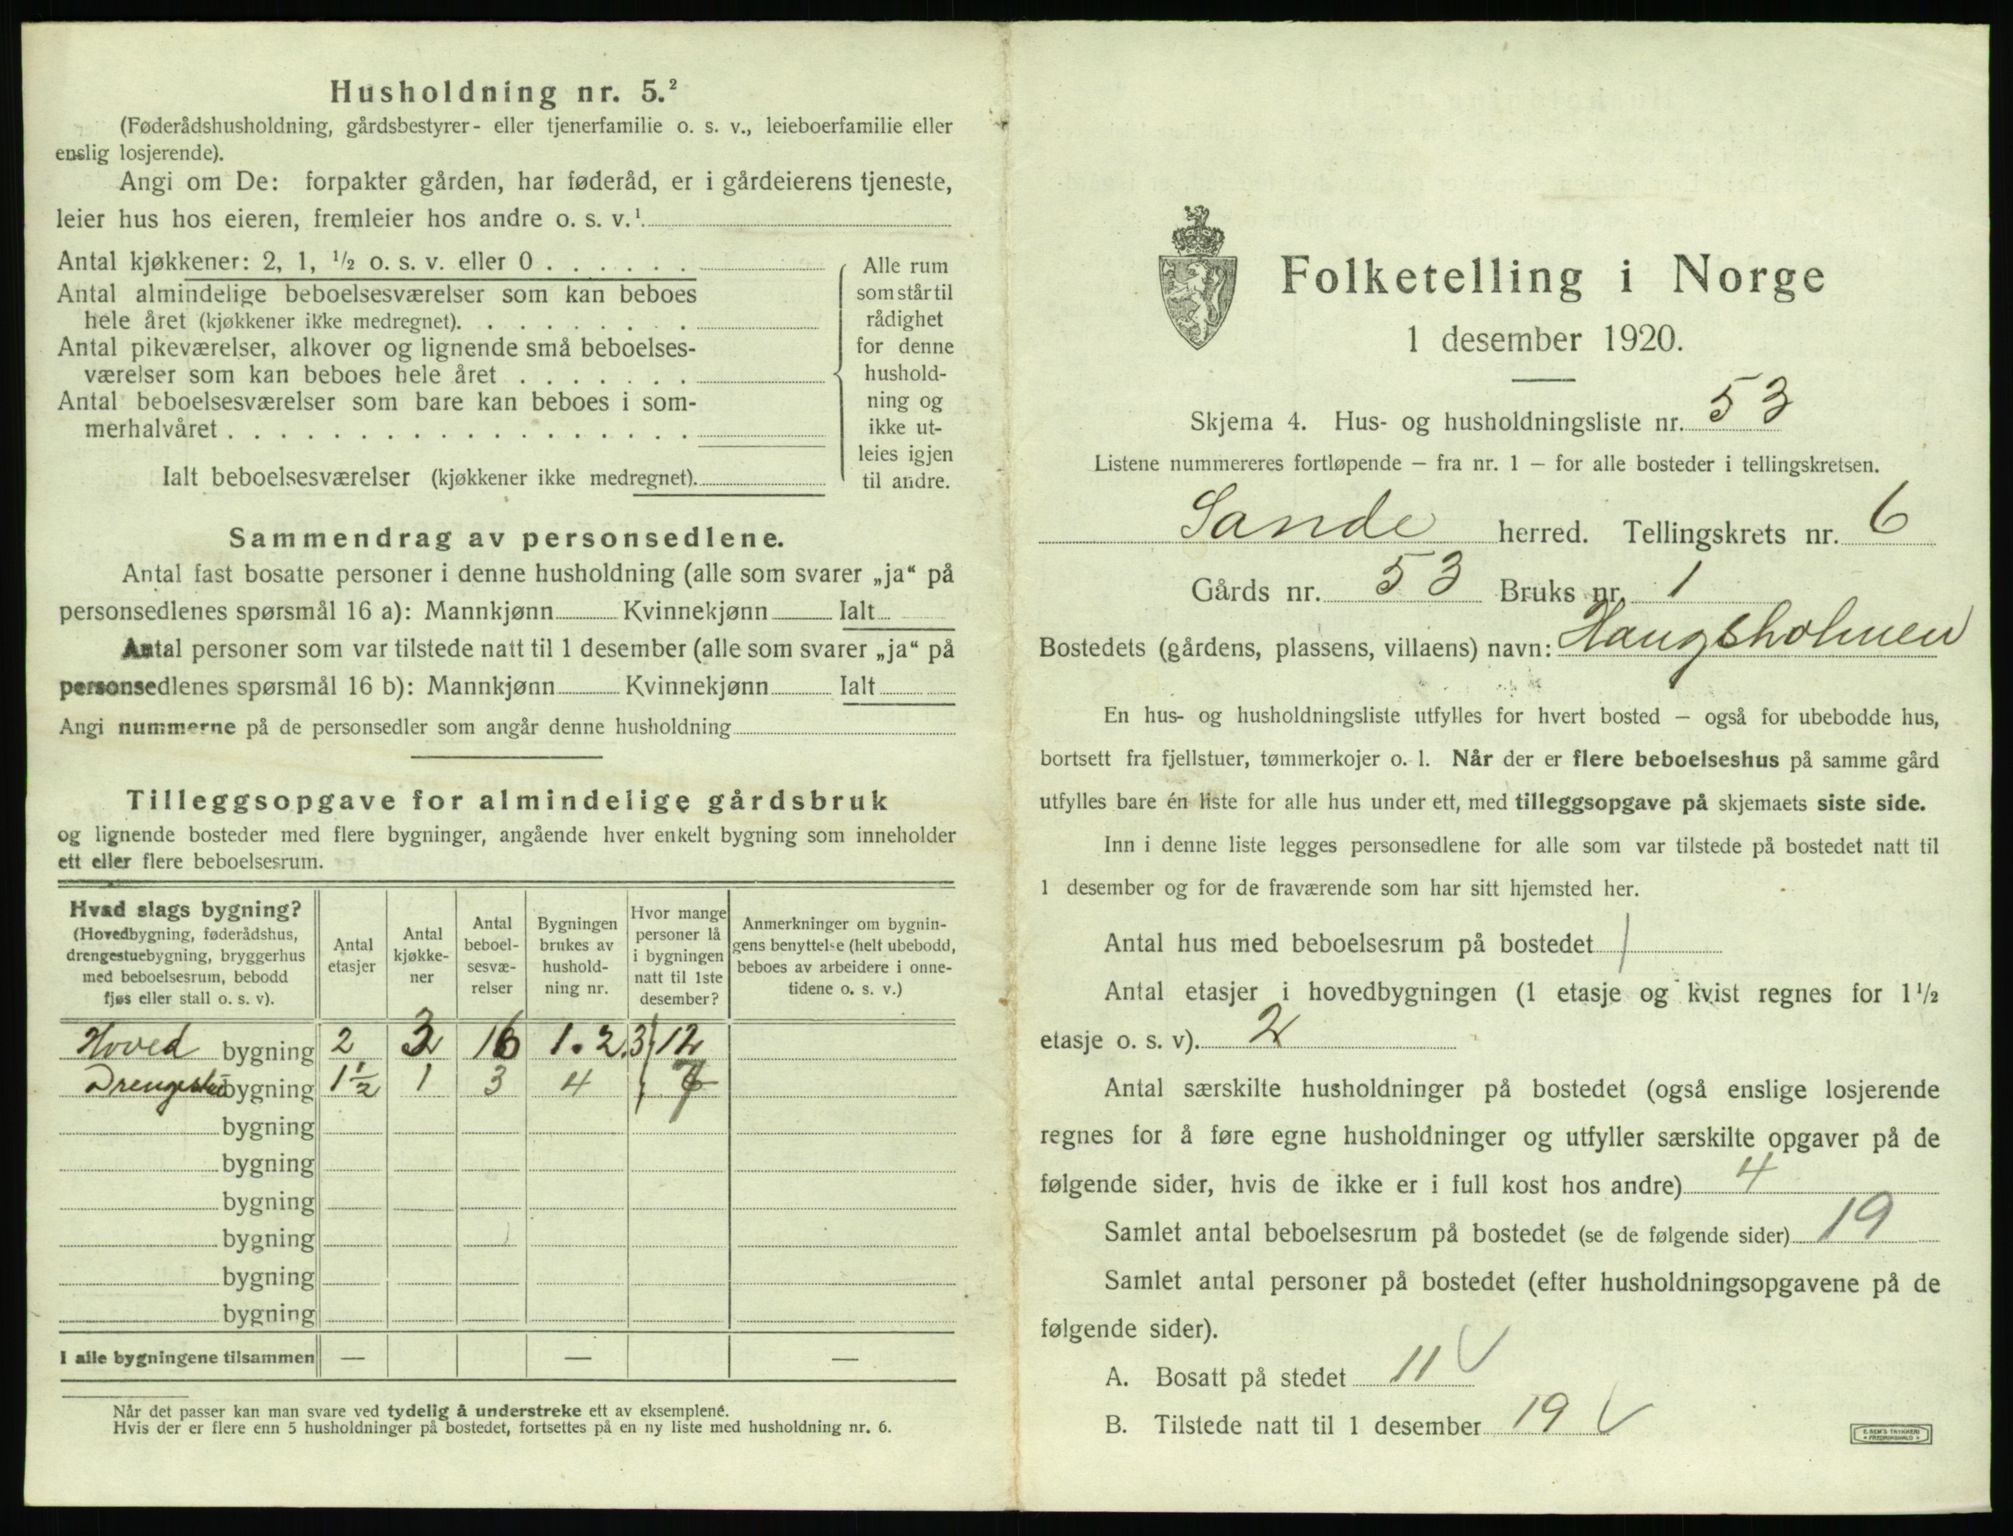 Husholdning nr. 5.²
(Føderådshusholdning, gårdsbestyrer- eller tjenerfamilie o. s. v., leieboerfamilie eller
enslig losjerende).
Angi om De: forpakter gården, har føderåd, er i gårdeierens tjeneste,
leier hus hos eieren, fremleier hos andre o. s. v.¹
Antal kjøkkener: 2, 1, ½ o. s. v. eller 0 . . . . . .
Antal almindelige beboelsesværelser som kan beboes
hele året (kjøkkener ikke medregnet). . . . . . . . .
Antal pikeværelser, alkover og lignende små beboelses-
værelser som kan beboes hele året . . . . . . .
Antal beboelsesværelser som bare kan beboes i som-
merhalvåret . . . . . . . . . . . . . . . . . .
Ialt beboelsesværelser (kjøkkener ikke medregnet).
Alle rum
som står til
rådighet
for denne
hushold-
ning og
ikke ut-
leies igjen
til andre.
Sammendrag av personsedlene.
Antal fast bosatte personer i denne husholdning (alle som svarer „ja“ på
personsedlenes spørsmål 16 a): Mannkjønn Kvinnekjønn Ialt
Antal personer som var tilstede natt til 1 desember (alle som svarer „ja“ på
personsedlenes spørsmål 16 b): Mannkjønn Kvinnekjønn Ialt
Angi nummerne på de personsedler som angår denne husholdning
Tilleggsopgave for almindelige gårdsbruk
og lignende bosteder med flere bygninger, angående hver enkelt bygning som inneholder
ett eller flere beboelsesrum.
Hvad slags bygning?
(Hovedbygning, føderådshus,
drengestuebygning, bryggerhus
med beboelsesrum, bebodd
fjøs eller stall o. s. v).
Antal
etasjer
Antal
kjøkke-
ner
Antal
beboel-
sesvæ-
relser
Bygningen
brukes av
hushold-
ning nr.
Hvor mange
personer lå
i bygningen
natt til 1ste
desember?
Anmerkninger om bygnin-
gens benyttelse (helt ubebodd,
beboes av arbeidere i onne-
tidene o. s. v.)
Hoved bygning 2 3 16 1. 2. 3 12
Drengestu bygning 1½ 1 3 4 7
bygning
bygning
bygning
bygning
bygning
bygning
I alle bygningene tilsammen — — —
Når det passer kan man svare ved tydelig å understreke ett av eksemplene.
Hvis der er flere enn 5 husholdninger på bostedet, fortsettes på en ny liste med husholdning nr. 6.
Folketelling i Norge
1 desember 1920.
Skjema 4. Hus- og husholdningsliste nr. 53
Listene nummereres fortløpende – fra nr. 1 – for alle bosteder i tellingskretsen.
Sande herred. Tellingskrets nr. 6
Gårds nr. 53 Bruks nr. 1
Bostedets (gårdens, plassens, villaens) navn: Haugsholmen
En hus- og husholdningsliste utfylles for hvert bosted – også for ubebodde hus,
bortsett fra fjellstuer, tømmerkojer o. l. Når der er flere beboelseshus på samme gård
utfylles bare én liste for alle hus under ett, med tilleggsopgave på skjemaets siste side.
Inn i denne liste legges personsedlene for alle som var tilstede på bostedet natt til
1 desember og for de fraværende som har sitt hjemsted her.
Antal hus med beboelsesrum på bostedet 1
Antal etasjer i hovedbygningen (1 etasje og kvist regnes for 1½
etasje o. s. v). 2
Antal særskilte husholdninger på bostedet (også enslige losjerende
regnes for å føre egne husholdninger og utfyller særskilte opgaver på de
følgende sider, hvis de ikke er i full kost hos andre) 4
Samlet antal beboelsesrum på bostedet (se de følgende sider) 19
Samlet antal personer på bostedet (efter husholdningsopgavene på de
følgende sider).
A. Bosatt på stedet 11 √
B. Tilstede natt til 1 desember 19 √
E. SEM'S TRYKKERI
FREDRIKSHALD